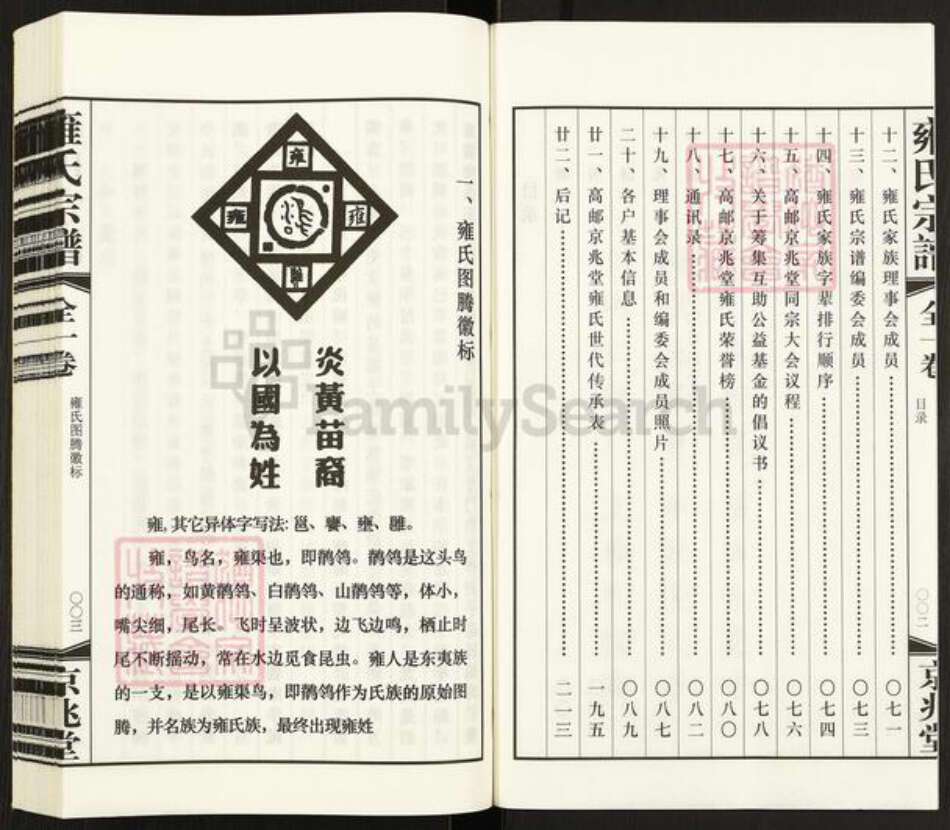 雍氏宗谱
全一卷
目录
〇〇二
京兆堂
十二、雍氏家族理事会成员……〇七一
十三、雍氏宗谱编委会成员……〇七三
十四、雍氏家族字辈排行顺序……〇七四
十五、高邮京兆堂同宗大会议程……〇七六
十六、关于筹集互助公益基金的倡议书……〇七八
十七、高邮京兆堂雍氏荣誉榜……〇八〇
十八、通讯录……〇八二
十九、理事会成员和编委会成员照片……〇八七
二十、各户基本信息……〇八九
廿一、高邮京兆堂雍氏世代传承表……一九五
廿二、后记……二一三
一、雍氏图腾徽标
雍
雍
雍
炎黃苗裔
以國為姓
雍,其它异体字写法:邕、饔、壅、雝。
雍，鸟名，雍渠也，即鹡鸰。鹡鸰是这头鸟
的通称，如黄鹡鸰、白鹡鸰、山鹡鸰等，体小，
嘴尖细，尾长。飞时呈波状，边飞边鸣，栖止时
尾不断摇动，常在水边觅食昆虫。雍人是东夷族
的一支，是以雍渠鸟，即鹡鸰作为氏族的原始图
腾，并名族为雍氏族，最终出现雍姓
雍氏宗譜
全一卷
雍氏图腾徽标
〇〇三
京兆堂
FamilySearch